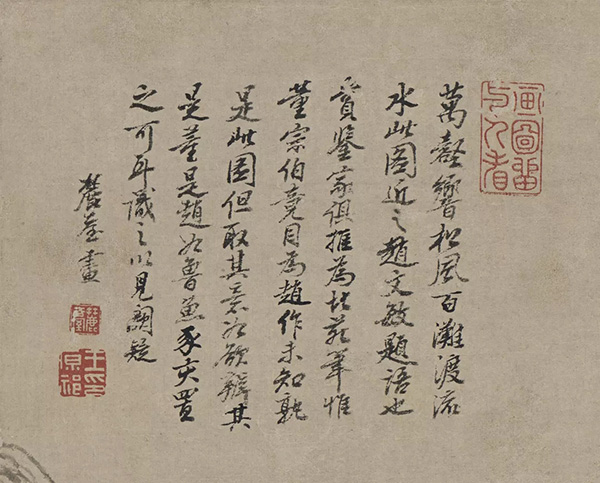 画圖留与人看
萬壑響松風百灘渡流
水此圖近之趙文敏題語也
賞鑒家俱推為北苑筆惟
董宗伯竟目為趙作未知孰
是此圖但取其意必欲辨其
是董是趙如魯魚豕亥置
之可耳識之以見闕疑
麓臺畫
麓臺
王原祁印